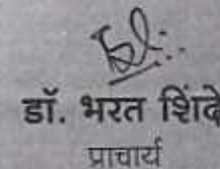 डॉ. भरत शिंदे
प्राचार्य